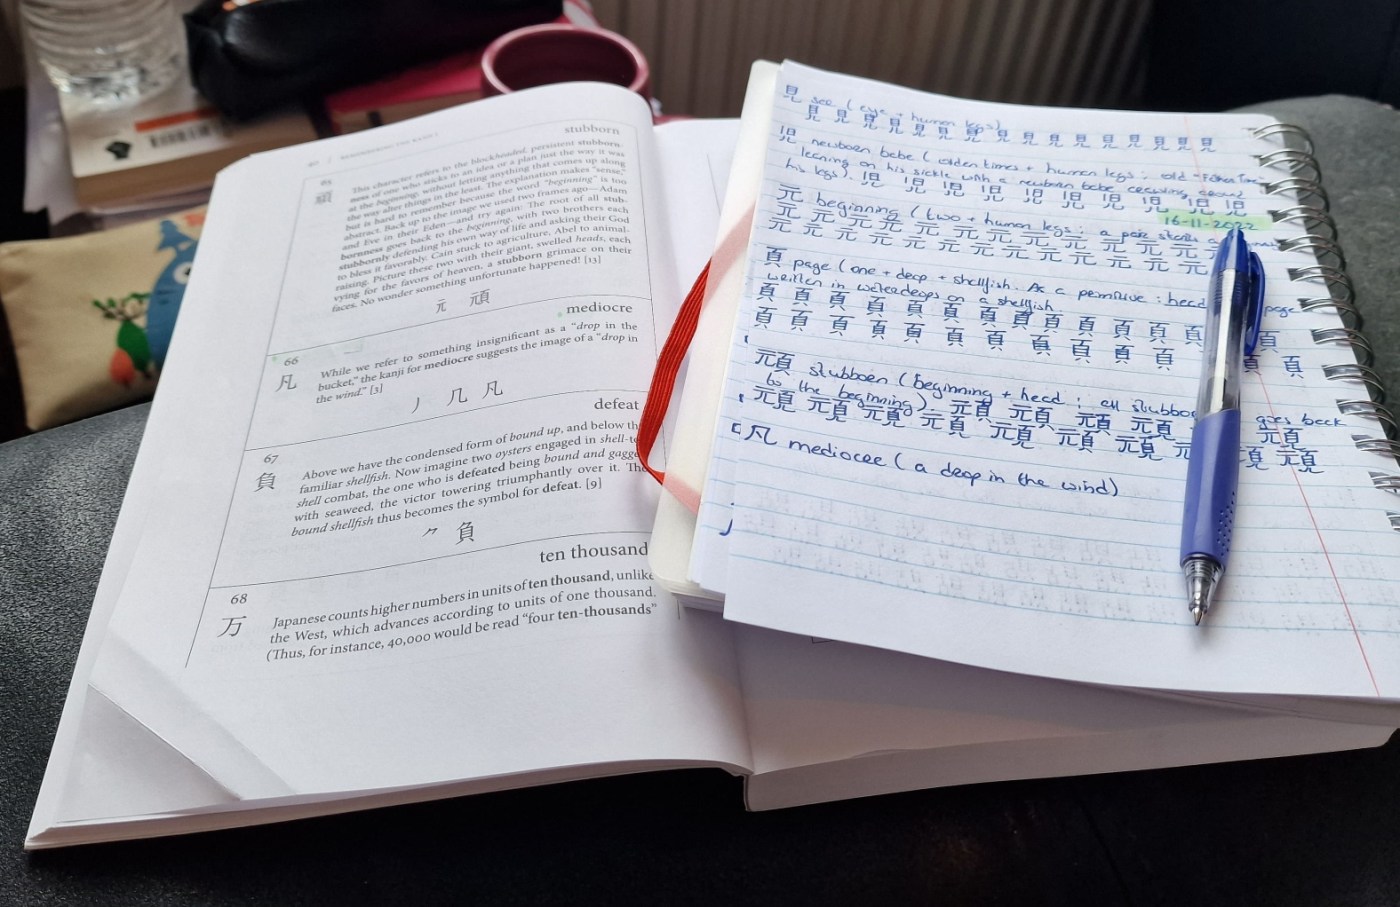 REMEMBERING THE KANJI 1
stubborn
65
頑
This character refers to the blockheaded, persistent stubborn-
ness of one who sticks to an idea or a plan just the way it was
at the beginning, without letting anything that comes up along
the way alter things in the least. The explanation makes “sense,”
but is hard to remember because the word “beginning” is too
abstract. Back up to the image we used two frames ago—Adam
and Eve in their Eden—and try again: The root of all stub-
bornness goes back to the beginning, with two brothers each
stubbornly defending his own way of life and asking their God
to bless it favorably. Cain stuck to agriculture, Abel to animal-
raising. Picture these two with their giant, swelled heads, each
vying for the favors of heaven, a stubborn grimace on their
faces. No wonder something unfortunate happened! [13]
元 頑
mediocre
66
凡
While we refer to something insignificant as a “drop in the
bucket,” the kanji for mediocre suggests the image of a “drop in
the wind.” [3]
丿 几 凡
defeat
67
負
Above we have the condensed form of bound up, and below th
familiar shellfish. Now imagine two oysters engaged in shell-to
shell combat, the one who is defeated being bound and gagge
with seaweed, the victor towering triumphantly over it. The
bound shellfish thus becomes the symbol for defeat. [9]
⺈ 負
ten thousand
68
万
Japanese counts higher numbers in units of ten thousand, unlike
the West, which advances according to units of one thousand.
(Thus, for instance, 40,000 would be read “four ten-thousands”
見 see (eye + human legs)
見 見 見 見 見 見 見 見 見 見 見 見 見 見 見 見
児 newborn babe (olden times + human legs: old - Father Time
leening on his sickle with a newborn babe crawling around
his legs). 児 児 児 児 児 児 児 児 児 児
16-11-2022
元 beginning (two + human legs: a pair starts a
元 元 元 元 元 元 元 元 元 元 元 元
元 元 元 元 元 元 元 元 元 元 元
頁 page (one + drop + shellfish. As a primitive: head page
written in waterdrops on a shellfish.
頁 頁 頁 頁 頁 頁 頁 頁 頁 頁 頁 頁 頁
頁 頁 頁 頁 頁 頁 頁 頁 頁 頁 頁 頁
頑 stubborn (beginning + head: all stubbor goes back
to the beginning). 頑 頑 頑 頑 頑
頑 頑 頑 頑 頑 頑 頑 頑 頑 頑
凡 mediocre (a drop in the wind)